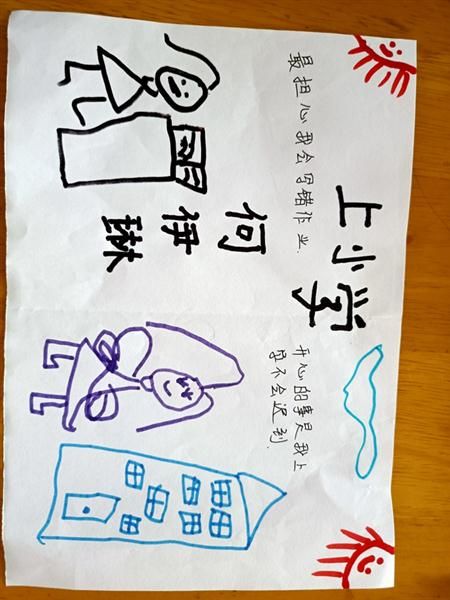 上小学
最担心我会写错作业.
开心的事是我上
学不会迟到.
何伊琳